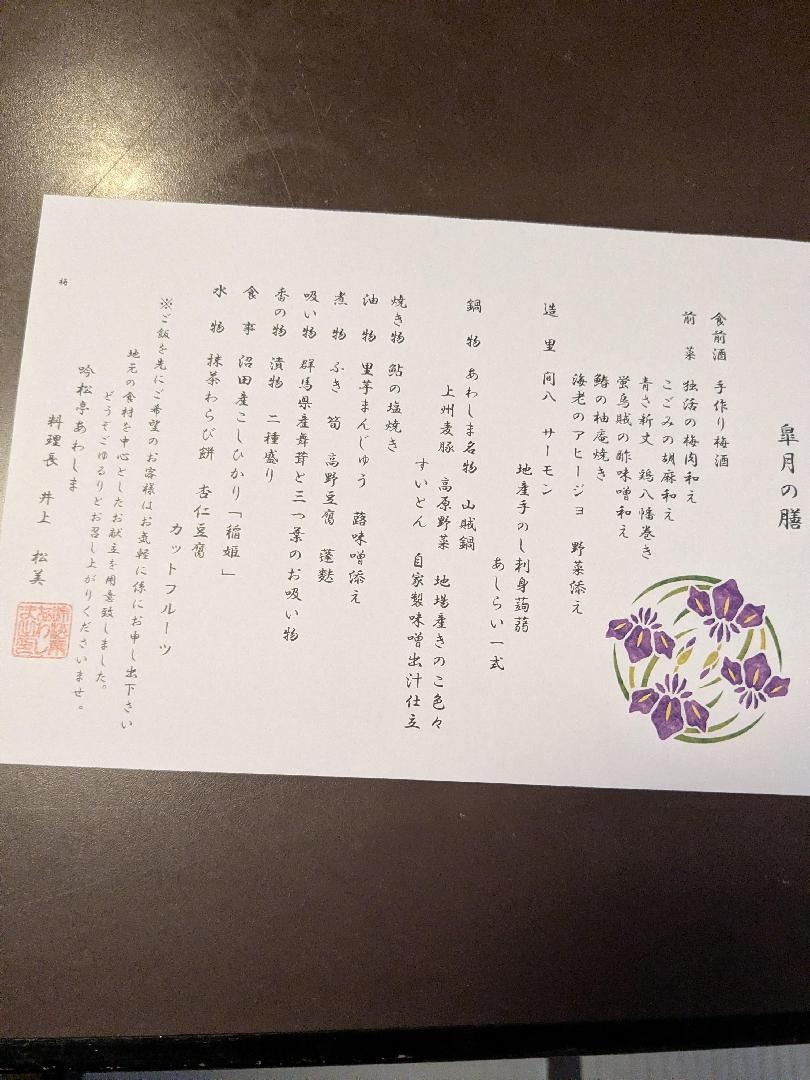 皐月の膳
食前酒 手作り梅酒
前菜 独活の梅肉和え
こごみの胡麻和え
青さ新丈 鶏八幡巻き
蛍烏賊の酢味噌和え
鰆の柚庵焼き
海老のアヒージョ 野菜添え
造里 間八 サーモン
地産手のし刺身蒟蒻
あしらい一式
鍋物 あわしま名物 山賊鍋
上州麦豚 高原野菜 地場産きのこ色々
すいとん 自家製味噌出汁仕立
焼き物 鮎の塩焼き
油物 里芋まんじゅう 蕗味噌添え
煮物 ふき 筍 高野豆腐 蓬麩
吸い物 群馬県産舞茸と三つ葉のお吸い物
香の物 漬物 二種盛り
食事 沼田産こしひかり「稲姫」
水物 抹茶わらび餅 杏仁豆腐
カットフルーツ
※ご飯を先にご希望のお客様はお気軽に係にお申し出下さい
地元の食材を中心としたお献立を用意致しました。
どうぞごゆるりとお召し上がりくださいませ。
吟松亭あわしま
料理長 井上 松美